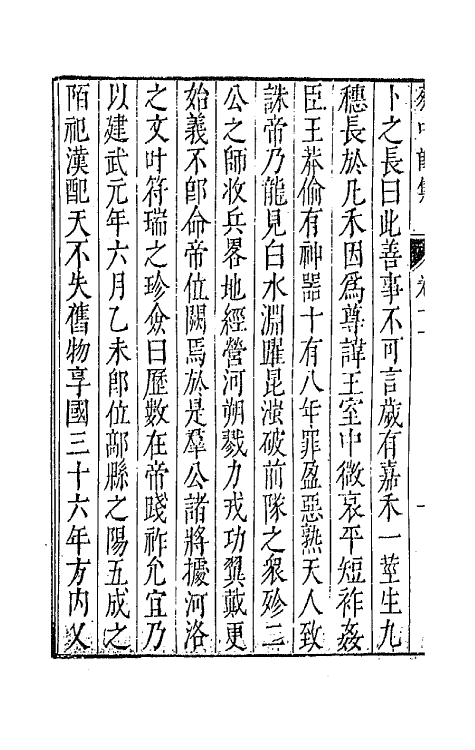 卜之長曰此善事不可言歲有嘉禾一莖生九
穗長於凡禾因爲尊諱王室中微哀平短祚姦
臣王莽偷有神器十有八年罪盈惡熟天人致
誅帝乃龍見白水淵躍昆滍破前隊之衆殄二
公之師收兵畧地經營河朔戮力戎功翼戴更
始義不卽命帝位闕焉於是羣公諸將據河洛
之文叶符瑞之珍僉曰歷數在帝踐祚允宜乃
以建武元年六月乙未卽位鄗縣之陽五成之
陌祀漢配天不失舊物享國三十六年方內乂